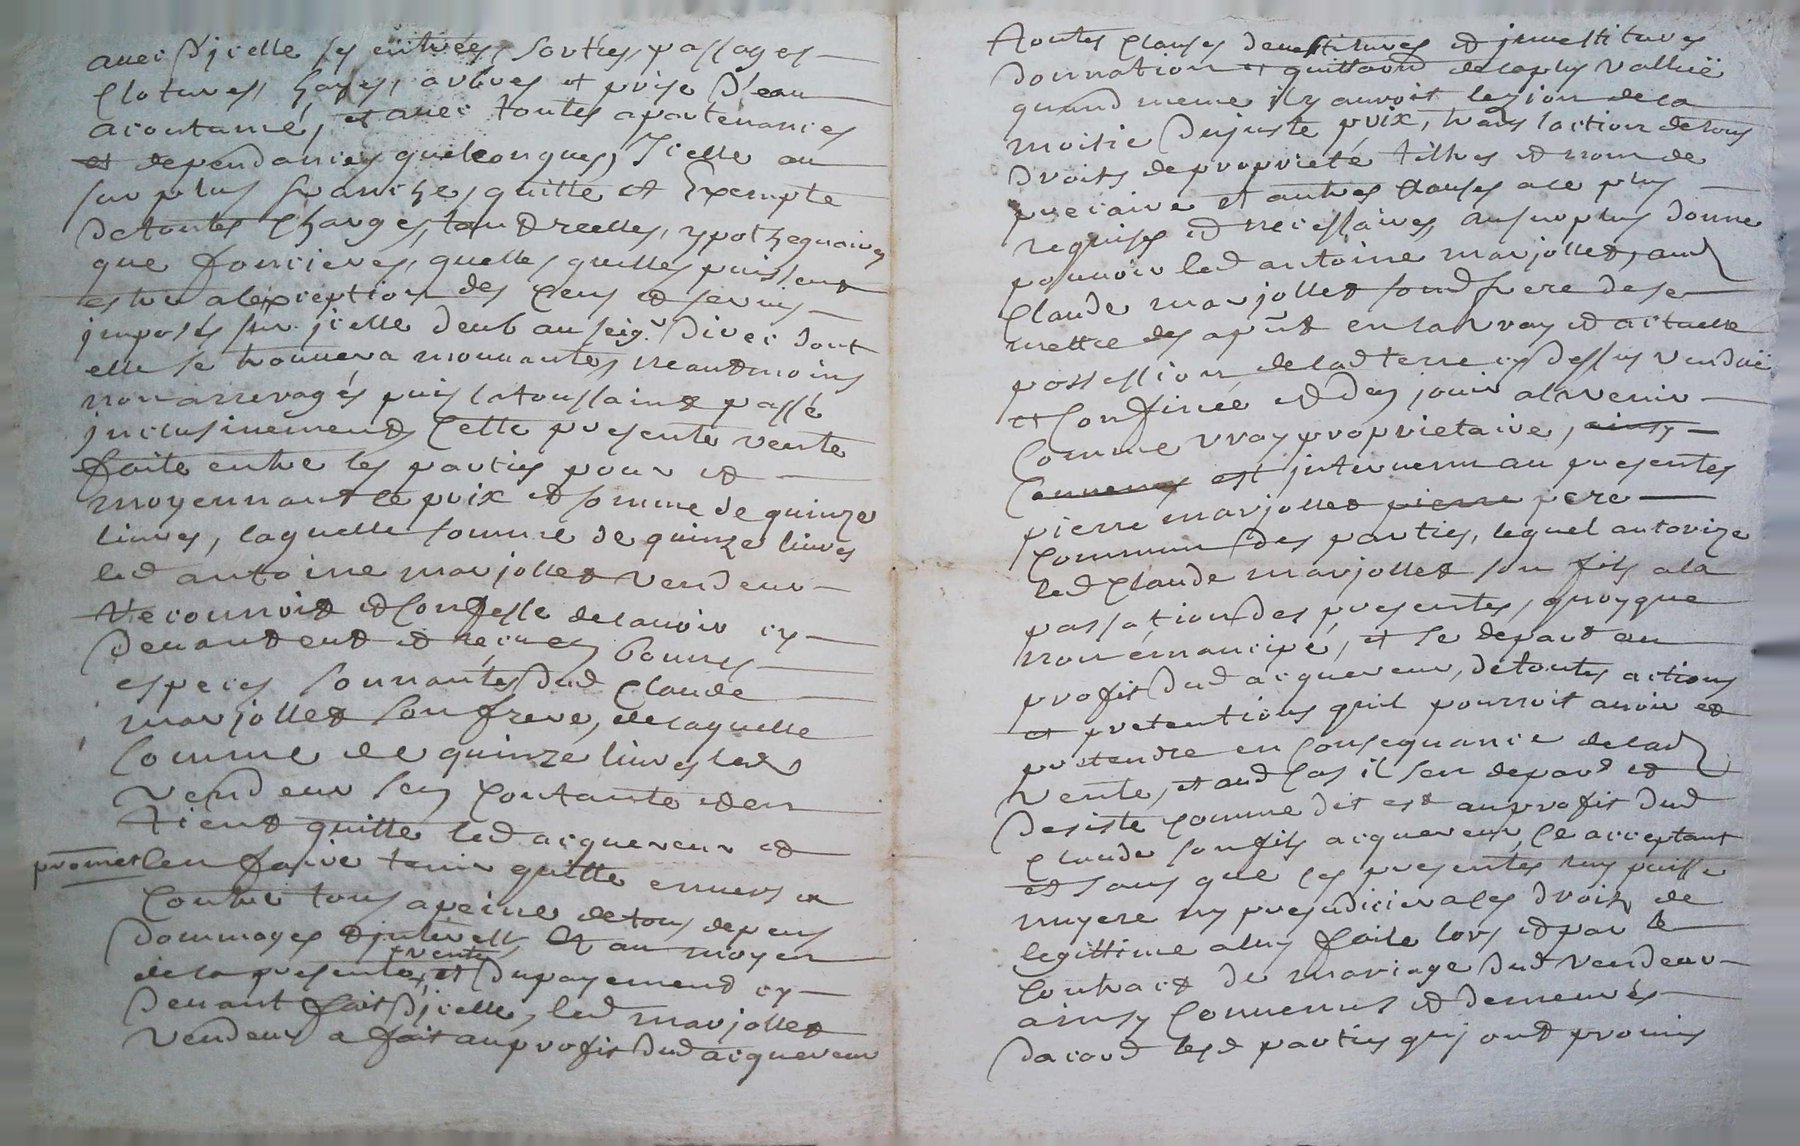 avec d'jcelle ses entrées, sorties, passages
clotures, hayes, arbres et prise d'eau
acoutumé, et avec toutes apartenances
et dependances quelconques, Jcelle au
surplus franche, quitte et Exempte
de toutes charges, tant reelles, ypothequaires
que foncieres, quelles quelles puissent
estre alexception des cens et servis
jmposés sur jcelle deub au seigr. divei dont
elle se trouvera mouvantes neantmoins
non arreragés puis la toussaint passé
jnclusivement, Cette presente vente
faite entre les parties pour et
moyennant le prix et somme de quinze
livres, laquelle somme de quinze livres
led antoine marjollet vendeur
reconnoit et confesse de lavoir cy
devant eut et reçue en bonnes
especes sonnantes dud Claude
marjollet son frere, de laquelle
somme de quinze livres led
vendeur sen contante et en
tient quitte led acquereur et
promet len faire tenir quitte envers et
contre tous apeine de tous depens
dommages et jnterests, Et au moyen
de la presente vente, et du payement cy
devant fait d'jcelle, led marjollet
vendeur a fait au profit dud acquereur
toutes clauses devestitures et jnvestitures
donnation et quittance de la plus vallüe
quand meme il y auroit lezion de la
moitié du juste prix, translaction de tous
droits de proprieté tiltres et nom de
precaire et autres clauses a ce plus
requises et necessaires, au surplus donne
pouvoir led antoine marjollet, aud
Claude marjollet sond frere de se
mettre des apñt en la vray et actuelle
possession de lad terre cy dessus venduë
et confinée et den jouir al'avenir
comme vray proprietaire, ainsy
Convenus est jntervenu au presentes
pierre marjollet pierre pere
commun des parties, lequel autorize
led Claude marjollet son fils a la
passation des presentes, quoyque
non émancipé, et se depart au
profit dud acquereur, de toutes actions
et pretentions quil pourroit avoir et
pretendre en consequance de lad
vente, et aud cas il sen depard et
desiste comme dit est au profit dud
Claude son fils acquereur, ce acceptant
et sans que ces presentes luy puisse
nuyere ny prejudicier a ses droits de
legittime a luy faite lors et par le
contract de mariage dud vendeur
ainsy Convenus et demeurés
dacord lesd parties qui ont promis